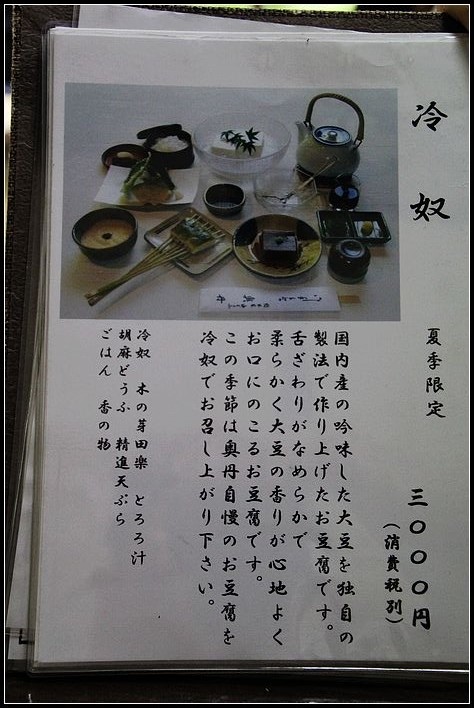 冷奴
夏季限定
三〇〇〇円
(消費税別)
国内産の吟味した大豆を独自の
製法で作り上げたお豆腐です。
舌ざわりがなめらかで
柔らかく大豆の香りが心地よく
お口にのこるお豆腐です。
この季節は奥丹自慢のお豆腐を
冷奴でお召し上がり下さい。
冷奴 木の芽田楽 とろろ汁
胡麻どうふ 精進天ぷら
ごはん 香の物
奥丹